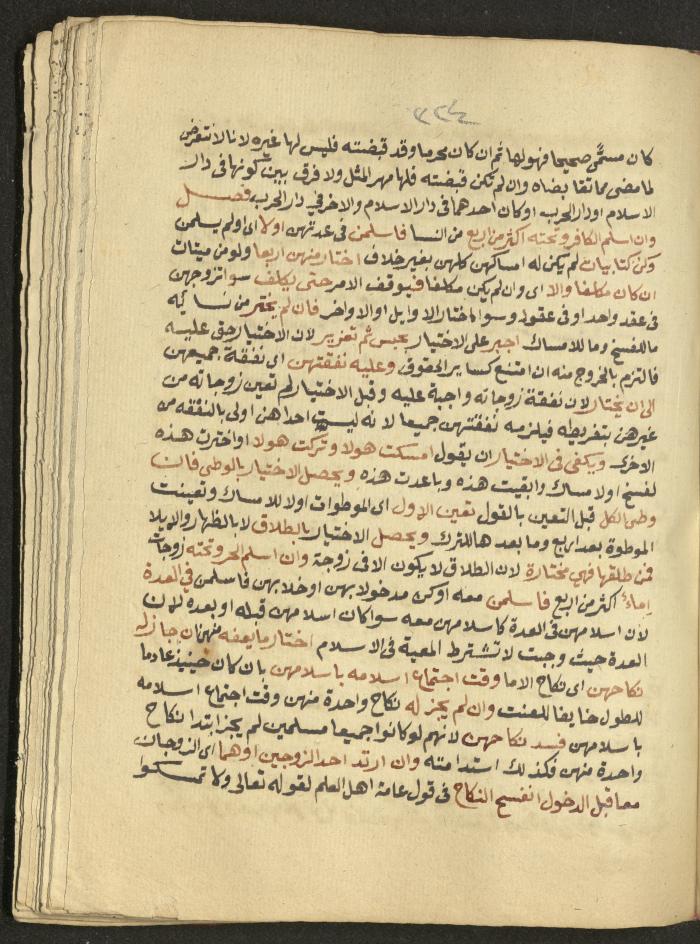 كان مسمى صحيحا فهو لها ثم ان كان محرما وقد قبضته فليس لها غيره لانا لا نتعرض
لما مضى مما تقابضاه وان لم تكن قبضته فلها مهر المثل ولا فرق بين كونها في دار
الاسلام او دار الحرب او كان احدهما في دار الاسلام والاخر في دار الحرب فصل
وان اسلم الكافر وتحته اكثر من اربع من النسا فاسلمن في عدتهن اولا اى او لم يسلمن
وكن كتابيات لم يكن له امساكهن كلهن بغير خلاف اختار منهن اربعا ولو من ميتات
ان كان مكلفا والا اى وان لم يكن مكلفا فيوقف الامر حتى يكلف سوا تزوجهن
في عقد واحد او في عقود وسوا اختار الاوايل او الاواخر فان لم يختر من نسايه
ما للفسخ وما للامساك اجبر على الاختيار بحبس ثم تعزير لان الاختيار حق عليه
فالتزم بالخروج منه ان امتنع كساير الحقوق وعليه نفقتهن اى نفقة جميعهن
الى ان يختار لان نفقة زوجاته واجبة عليه وقبل الاختيار لم تعين زوجاته من
غيرهن بتفريطه فيلزمه نفقتهن جميعا لانه ليست احداهن اولى بالنفقه من
الاخرى ويكفى في الاختيار ان يقول امسكت هولا وتركت هولا او اخترت هذه
لفسخ او لامساك وابقيت هذه وباعدت هذه ويحصل الاختيار بالوطى فان
وطى الكل قبل التعين بالقول تعين الاول اى الموطوات اولا للامساك وتعينت
الموطوة بعد اربع وما بعدها للترك ويحصل الاختيار بالطلاق لا بالظهار والايلا
فمن طلقها فهي مختارة لان الطلاق لا يكون الا في زوجة وان اسلم الحر وتحته زوجات
اماء اكثر من اربع فاسلمن معه او كن مدخولا بهن او خلا بهن فاسلمن في العدة
لان اسلامهن في العدة كاسلامهن معه سوا كان اسلامهن قبله او بعده لان
العدة حيث وجبت لا تشترط المعية في الاسلام اختار ما يعفه منهن ان جاز له
نكاحهن اى نكاح الاما وقت اجتماع اسلامه باسلامهن بان كان حينيذ عادما
للطول خايفا للعنت وان لم يجز له نكاح واحدة منهن وقت اجتماع اسلامه
باسلامهن فسد نكاحهن لانهم لو كانوا جميعا مسلمين لم يجز ابتدا نكاح
واحدة منهن فكذلك استدامته وان ارتد احد الزوجين او هما اى الزوجان
معا قبل الدخول انفسخ النكاح في قول عامة اهل العلم لقوله تعالى ولا تمسكوا